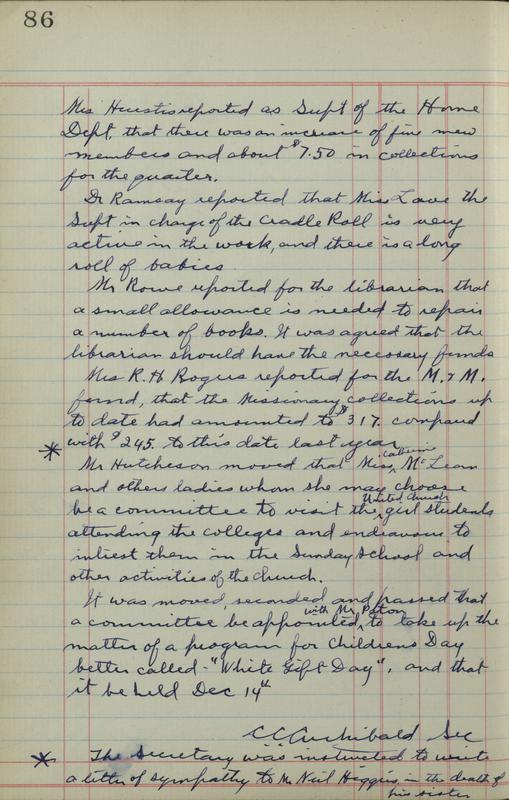 86
Miss Huestis reported as Supt of the Home
Dept, that there was an increase of five new
members and about $7.50 in collections
for the quarter.
Dr Ramsay reported that Miss Lowe the
Supt in charge of the Cradle Roll is very
active in the work, and there is a long
roll of babies.
Mr Rowe reported for the librarian that
a small allowance is needed to repair
a number of books. It was agreed that the
librarian should have the necessary funds
Mrs R. H Rogers reported for the M. & M.
fund, that the Missionary collections up
to date had amounted to $317. compared
with $245. to this date last year
* Mr Hutcheson moved that Miss Catherine McLean
and others ladies whom she may choose
be a committee to visit the United Church girl students
attending the colleges and endeavour to
intrest them in the Sunday School and
other activities of the Church.
It was moved, seconded and passed that
a committee be appointed with Mr Paton to take up the
matter of a program for Childrens Day
better called - "White Gift Day", and that
it be held Dec 14th
C C Archibald Sec
* The Secretary was instructed to write
a letter of sympathy to Mr Neil Higgins in the death of
his sister